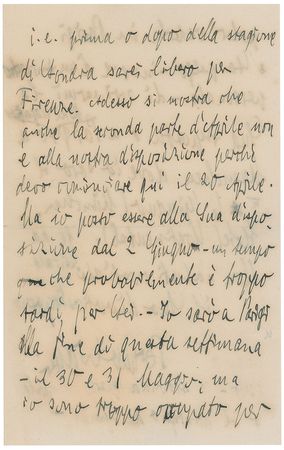 i.e. prima o dopo della stagione
di Londra sarei libero per
Firenze. Adesso si mostra che
anche la seconda parte d'Aprile non
è alla nostra disposizione perchè
devo cominciare qui il 20 Aprile.
Ma io posso essere alla Sua dispo-
sizione dal 2 Giugno - un tempo
che probabilmente è troppo
tardi per Lei. - Io sarò a Parigi
alla fine di questa settimana
- il 30 e 31 Maggio; ma
io sono troppo occupato per